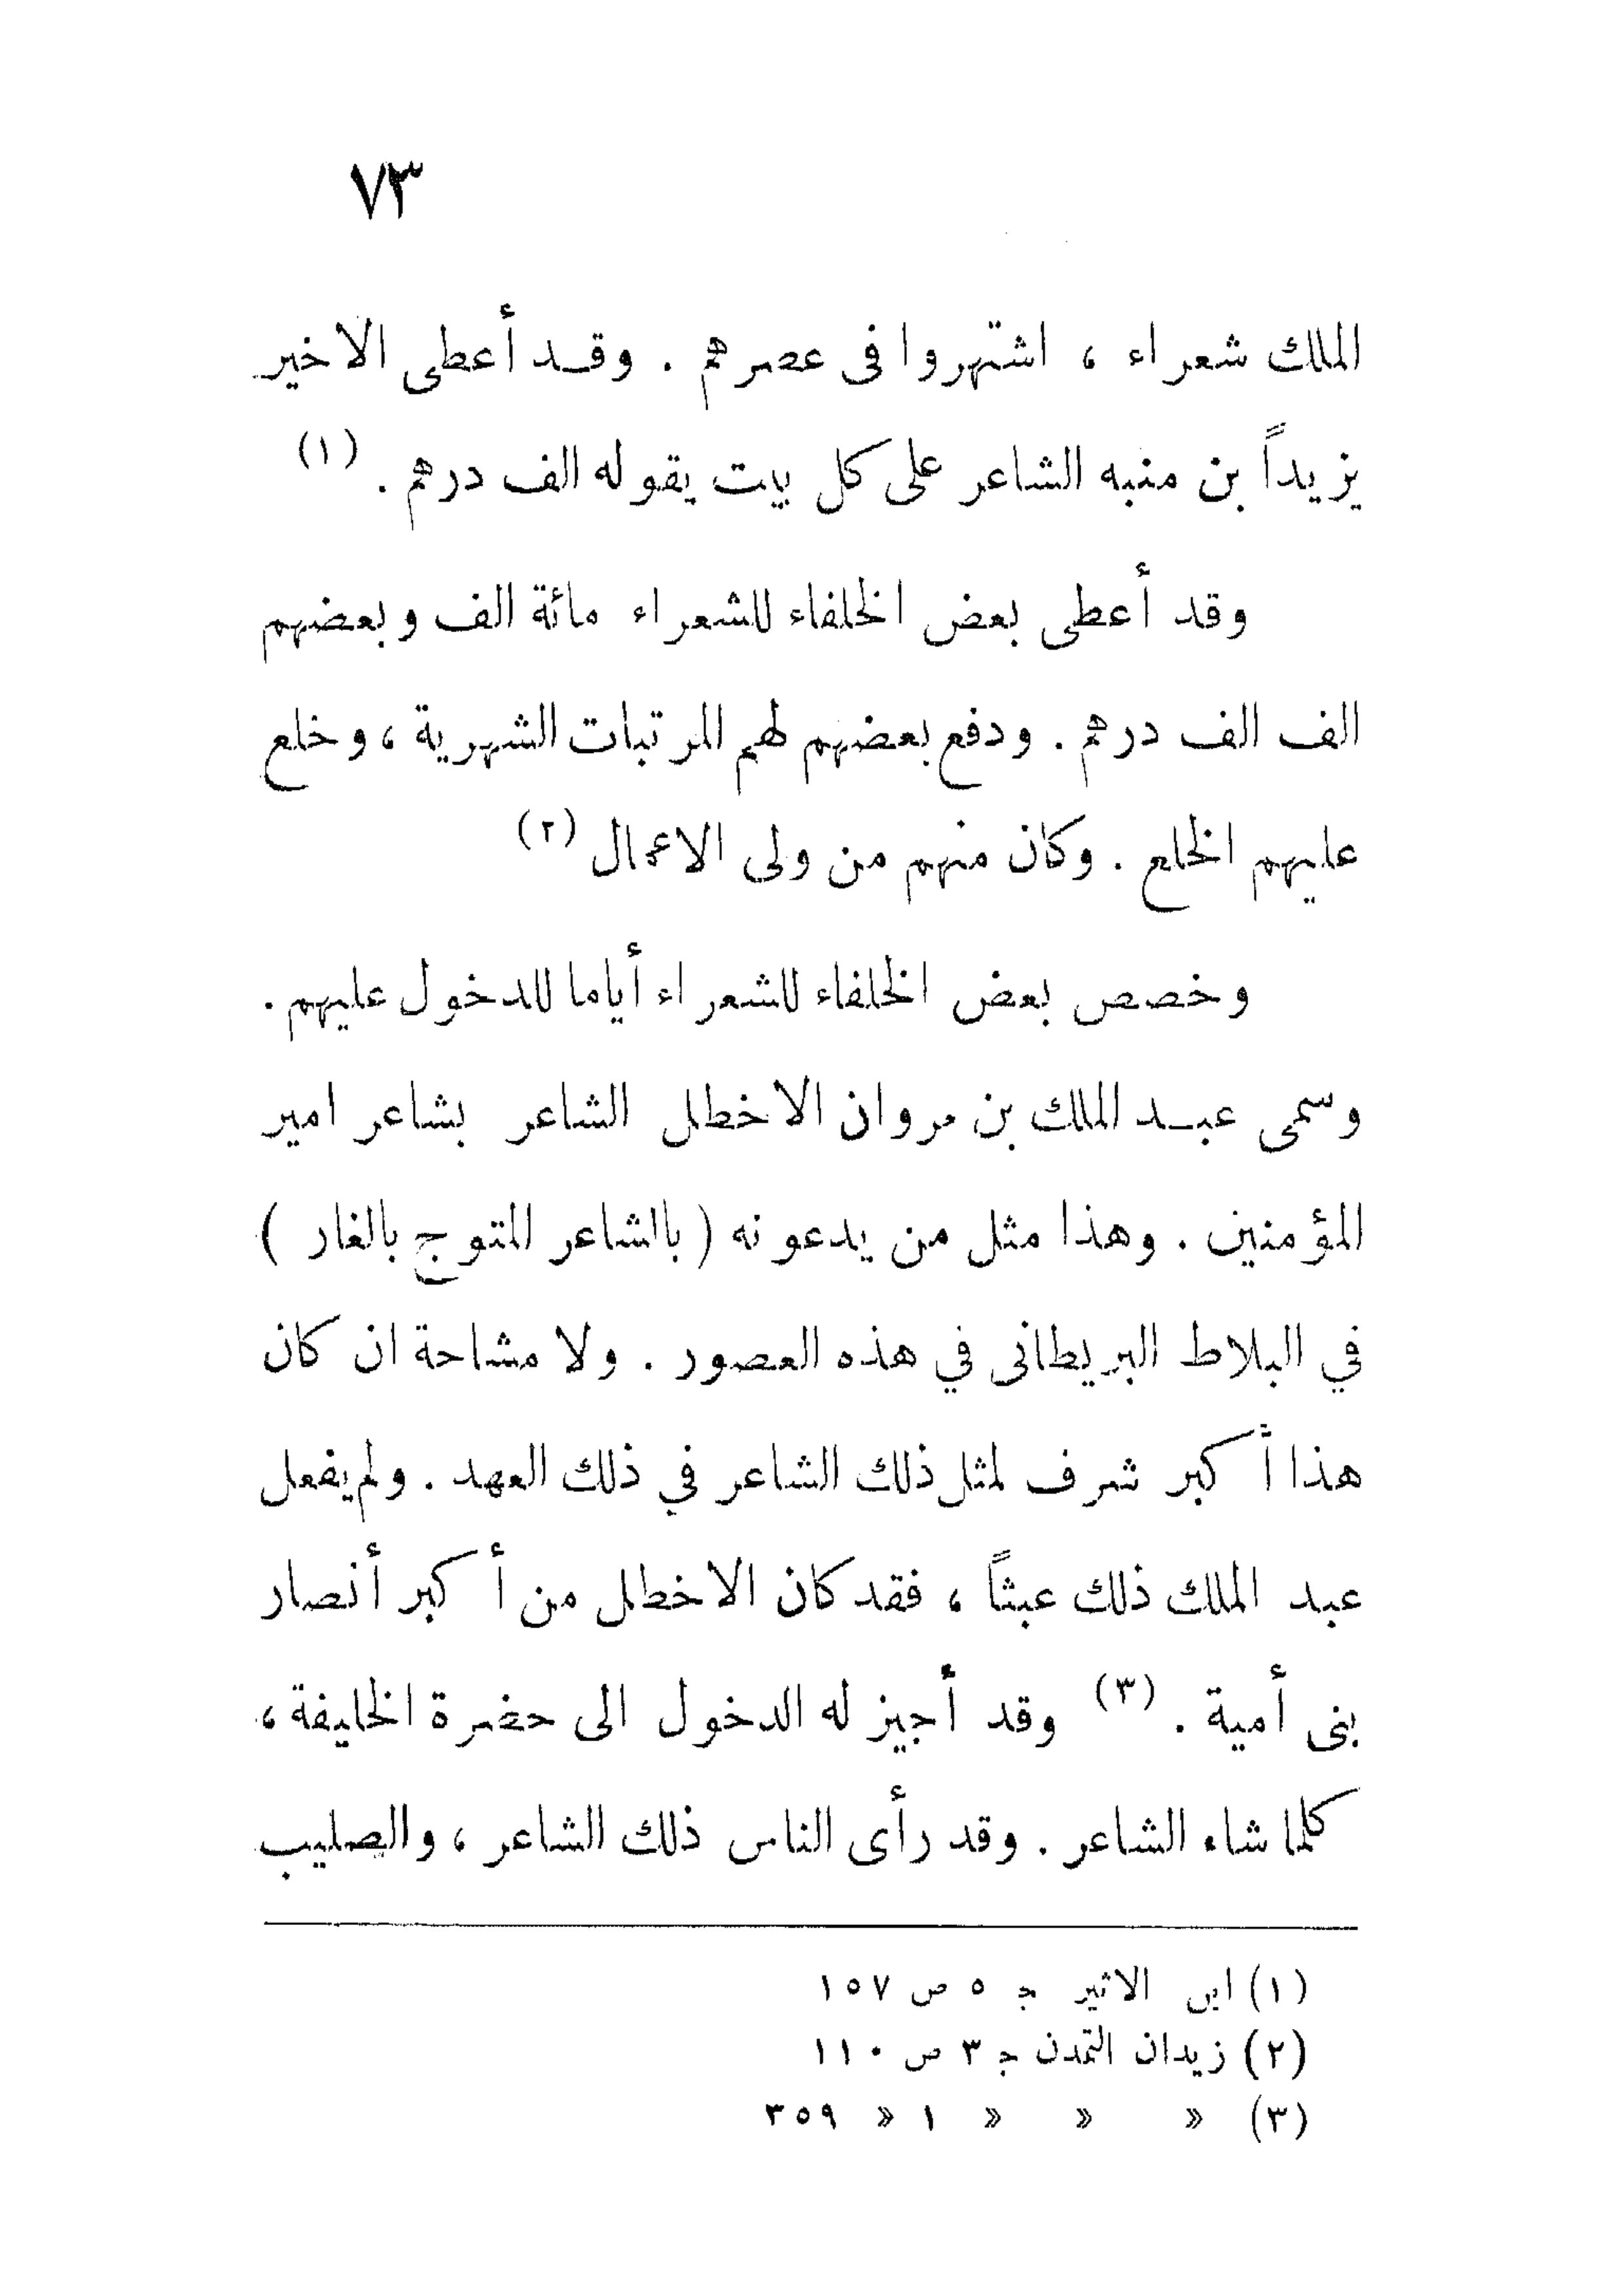 ٧٣
الملك شعراء ، اشتهروا فى عصرهم . وقد أعطى الاخير
يزيداً بن منبه الشاعر على كل بيت يقوله الف درهم . (١)
وقد أعطى بعض الخلفاء للشعراء مائة الف وبعضهم
الف الف درهم . ودفع بعضهم لهم المرتبات الشهرية ، وخلع
عليهم الخلع . وكان منهم من ولى الاعمال (٢)
وخصص بعض الخلفاء للشعراء أياما للدخول عليهم .
وسمى عبد الملك بن مروان الاخطل الشاعر بشاعر امير
المؤمنين . وهذا مثل من يدعونه ( بالشاعر المتوج بالغار )
في البلاط البريطانى في هذه العصور . ولا مشاحة ان كان
هذا أكبر شرف لمثل ذلك الشاعر في ذلك العهد . ولم يفعل
عبد الملك ذلك عبثاً ، فقد كان الاخطل من أكبر أنصار
بنى أمية . (٣) وقد أجيز له الدخول الى حضرة الخليفة ،
كلما شاء الشاعر . وقد رأى الناس ذلك الشاعر ، والصليب
(١) ابن الاثير ج ٥ ص ١٥٧
(٢) زيدان التمدن ج ٣ ص ١١٠
(٣) » » » ١ » ٣٥٩